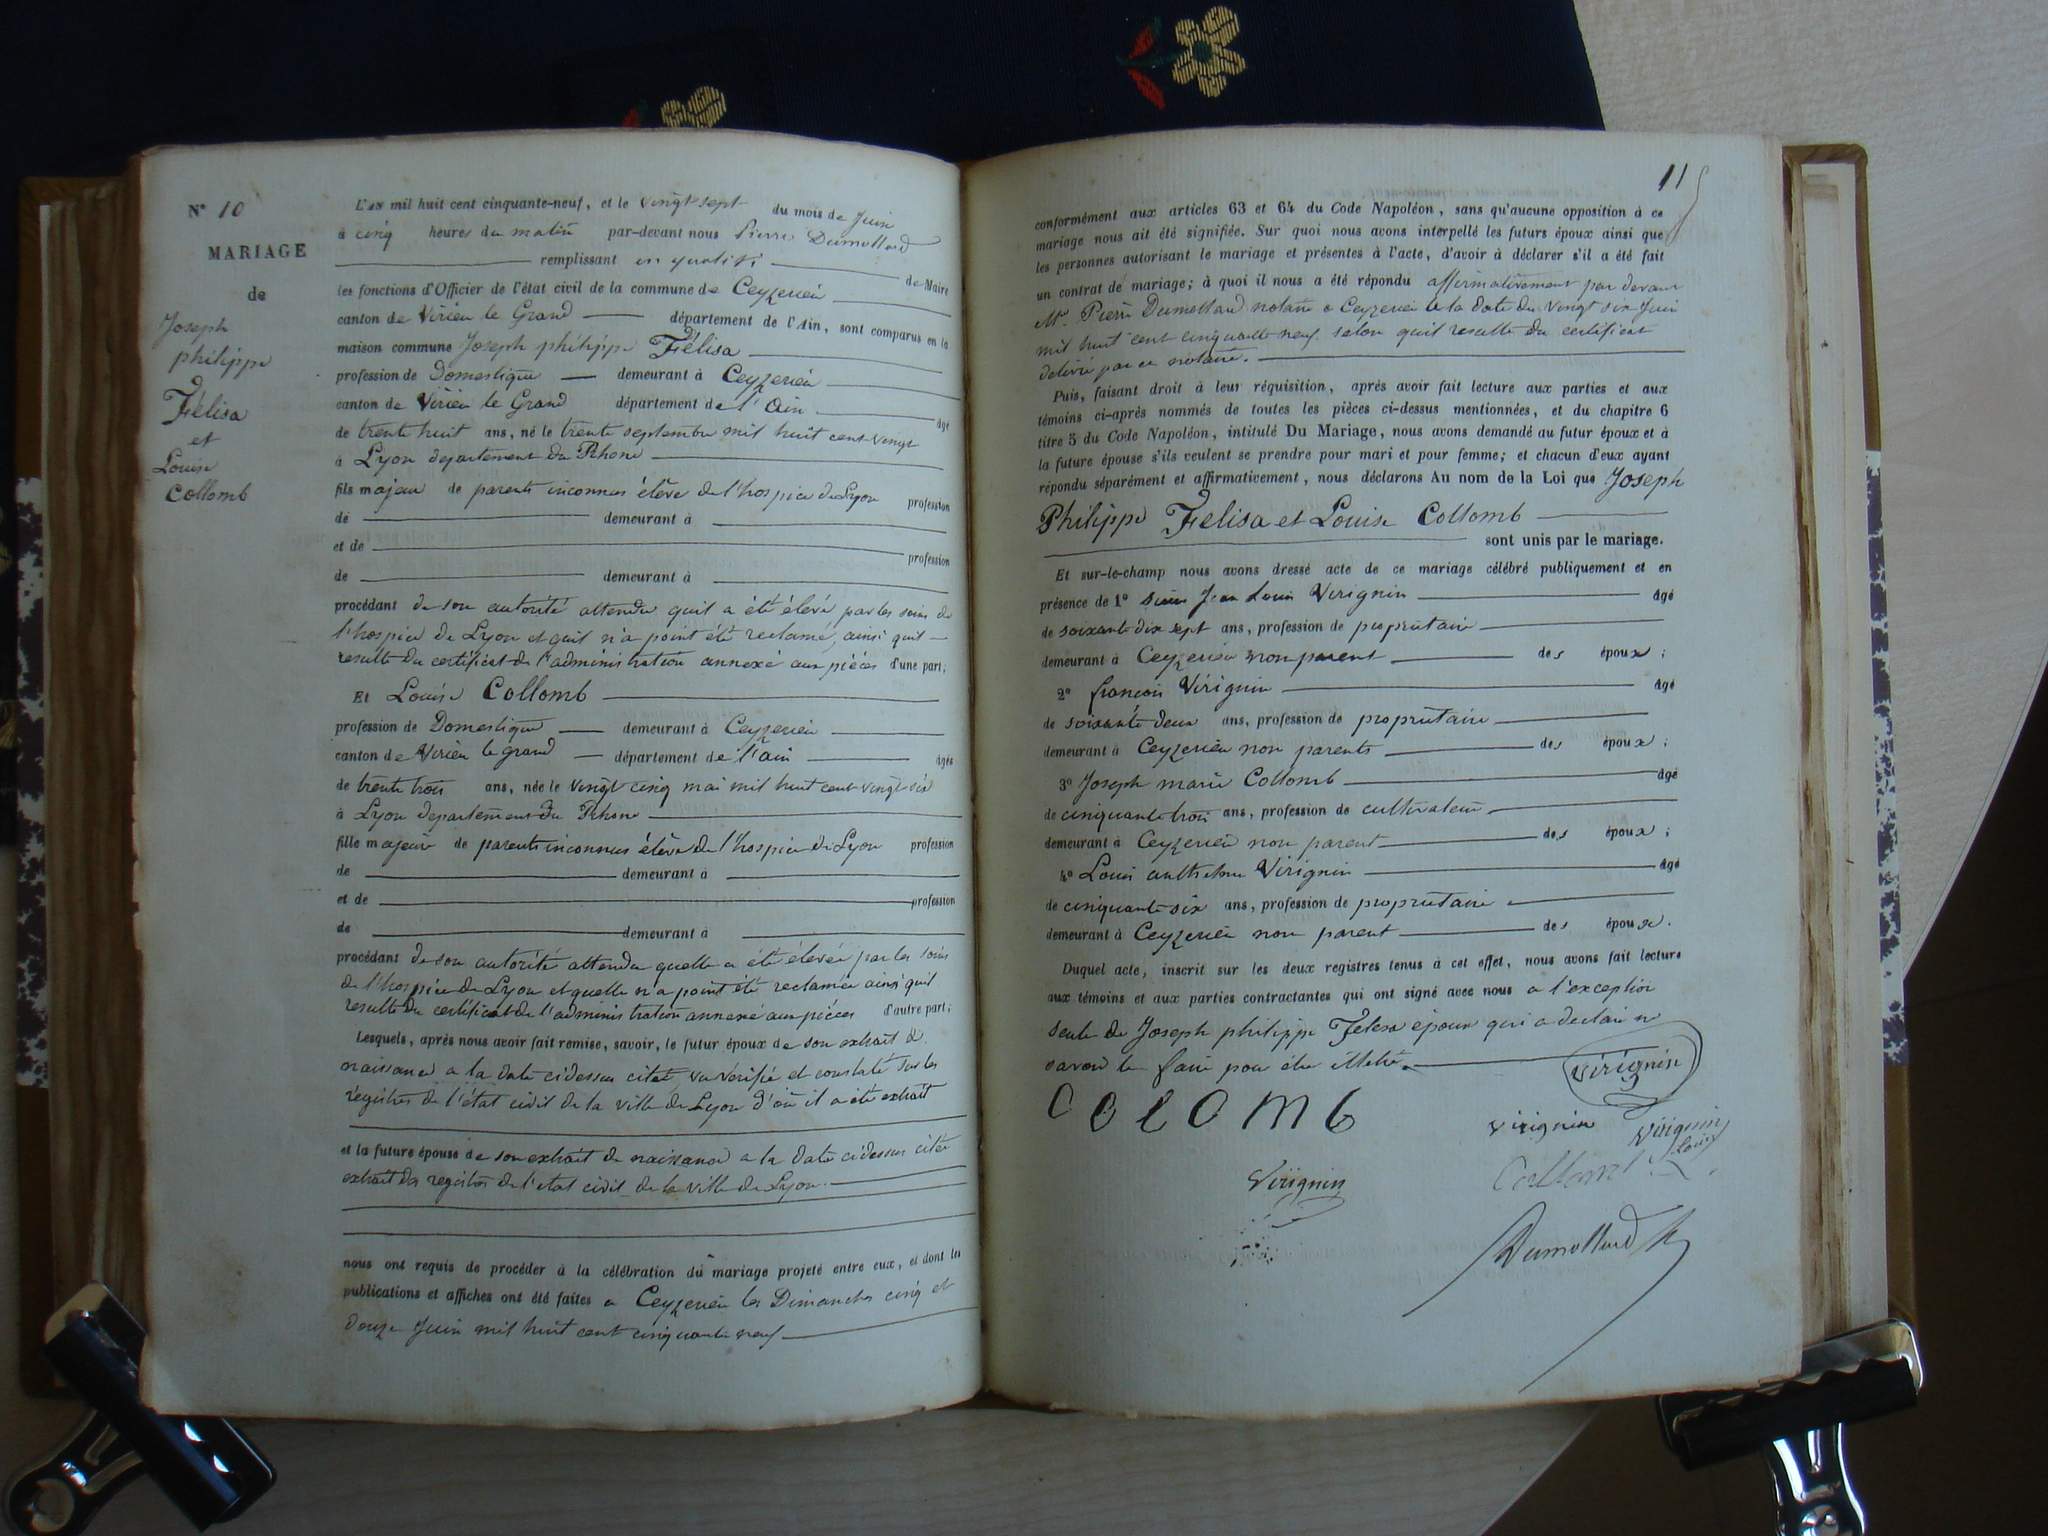 N° 10
MARIAGE
de
Joseph
philippe
Félisa
et
Louise
Collomb
L'an mil huit cent cinquante-neuf, et le vingt sept du mois de Juin
à cinq heures du matin par-devant nous Pierre Dumollard
remplissant en qualité de Maire
les fonctions d'Officier de l'état civil de la commune de Ceyzerieu
canton de Virieu le Grand département de l'Ain, sont comparus en la
maison commune Joseph philippe Félisa
profession de Domestique demeurant à Ceyzerieu
canton de Virieu le Grand département de l'ain âgé
de trente huit ans, né le trente septembre mil huit cent vingt
à Lyon departement du Rhone
fils majeur de parents inconnus élève de l'hospice de Lyon profession
de demeurant à
et de profession
de demeurant à
procédant de son autorité attendu quil a été élevé par les soins de
l'hospice de Lyon et quil n'a point été reclamé, ainsi quil
resulte du certificat de l'administration annexé aux pièces d'une part;
Et Louise Collomb
profession de Domestique demeurant à Ceyzerieu
canton de Virieu le grand département de l'ain âgée
de trente trois ans, née le vingt cinq mai mil huit cent vingt six
à Lyon departement du Rhone
fille majeure de parents inconnus élève de l'hospice de Lyon profession
de demeurant à
et de profession
de demeurant à
procédant de son autorité attendu quelle a été élevée par les soins
de l'hospice de Lyon et quelle n'a point été reclamée ainsi quil
resulte du certificat de l'administration annexé aux pièces d'autre part;
Lesquels, après nous avoir fait remise, savoir, le futur époux de son extrait de
naissance a la date cidessus citée, vu verifié et constaté sur les
régistres de l'état civil de la ville de Lyon d'où il a été extrait
et la future épouse de son extrait de naissance a la date cidessus citée
extrait des registres de l'etat civil de la ville de Lyon.
nous ont requis de procéder à la célébration du mariage projeté entre eux, et dont les
publications et affiches ont été faites a Ceyzerieu les Dimanches cinq et
douze Juin mil huit cent cinquante neuf
11
conformément aux articles 63 et 64 du Code Napoléon, sans qu'aucune opposition à ce
mariage nous ait été signifiée. Sur quoi nous avons interpellé les futurs époux ainsi que
les personnes autorisant le mariage et présentes à l'acte, d'avoir à déclarer s'il a été fait
un contrat de mariage; à quoi il nous a été répondu affirmativement par devant
Mr. Pierre Dumollard notaire a Ceyzerieu a la date du vingt six Juin
mil huit cent cinquante neuf selon quil resulte du certificat
delivré par ce notaire.
Puis, faisant droit à leur réquisition, après avoir fait lecture aux parties et aux
témoins ci-après nommés de toutes les pièces ci-dessus mentionnées, et du chapitre 6
titre 5 du Code Napoléon, intitulé Du Mariage, nous avons demandé au futur époux et à
la future épouse s'ils veulent se prendre pour mari et pour femme; et chacun d'eux ayant
répondu séparément et affirmativement, nous déclarons Au nom de la Loi que Joseph
Philippe Felisa et Louise Collomb
sont unis par le mariage.
Et sur-le-champ nous avons dressé acte de ce mariage célébré publiquement et en
présence de 1° Jean Louis Virignin âgé
de soixante dix sept ans, profession de proprietaire
demeurant à Ceyzerieu non parent des époux;
2° françois Virignin âgé
de soixante deux ans, profession de proprietaire
demeurant à Ceyzerieu non parents des époux;
3° Joseph marie Collomb âgé
de cinquante trois ans, profession de cultivateur
demeurant à Ceyzerieu non parent des époux;
4° Louis anthelme Virignin âgé
de cinquante six ans, profession de proprietaire
demeurant à Ceyzerieu non parent des époux.
Duquel acte, inscrit sur les deux registres tenus à cet effet, nous avons fait lecture
aux témoins et aux parties contractantes qui ont signé avec nous a l'exception
seule de Joseph philippe Felisa époux qui a declaré ne
savoir le faire pour être illetré.
virignin
COLOMb
virignin
Virignin
Louis
Virignin
Collomb
Dumollard